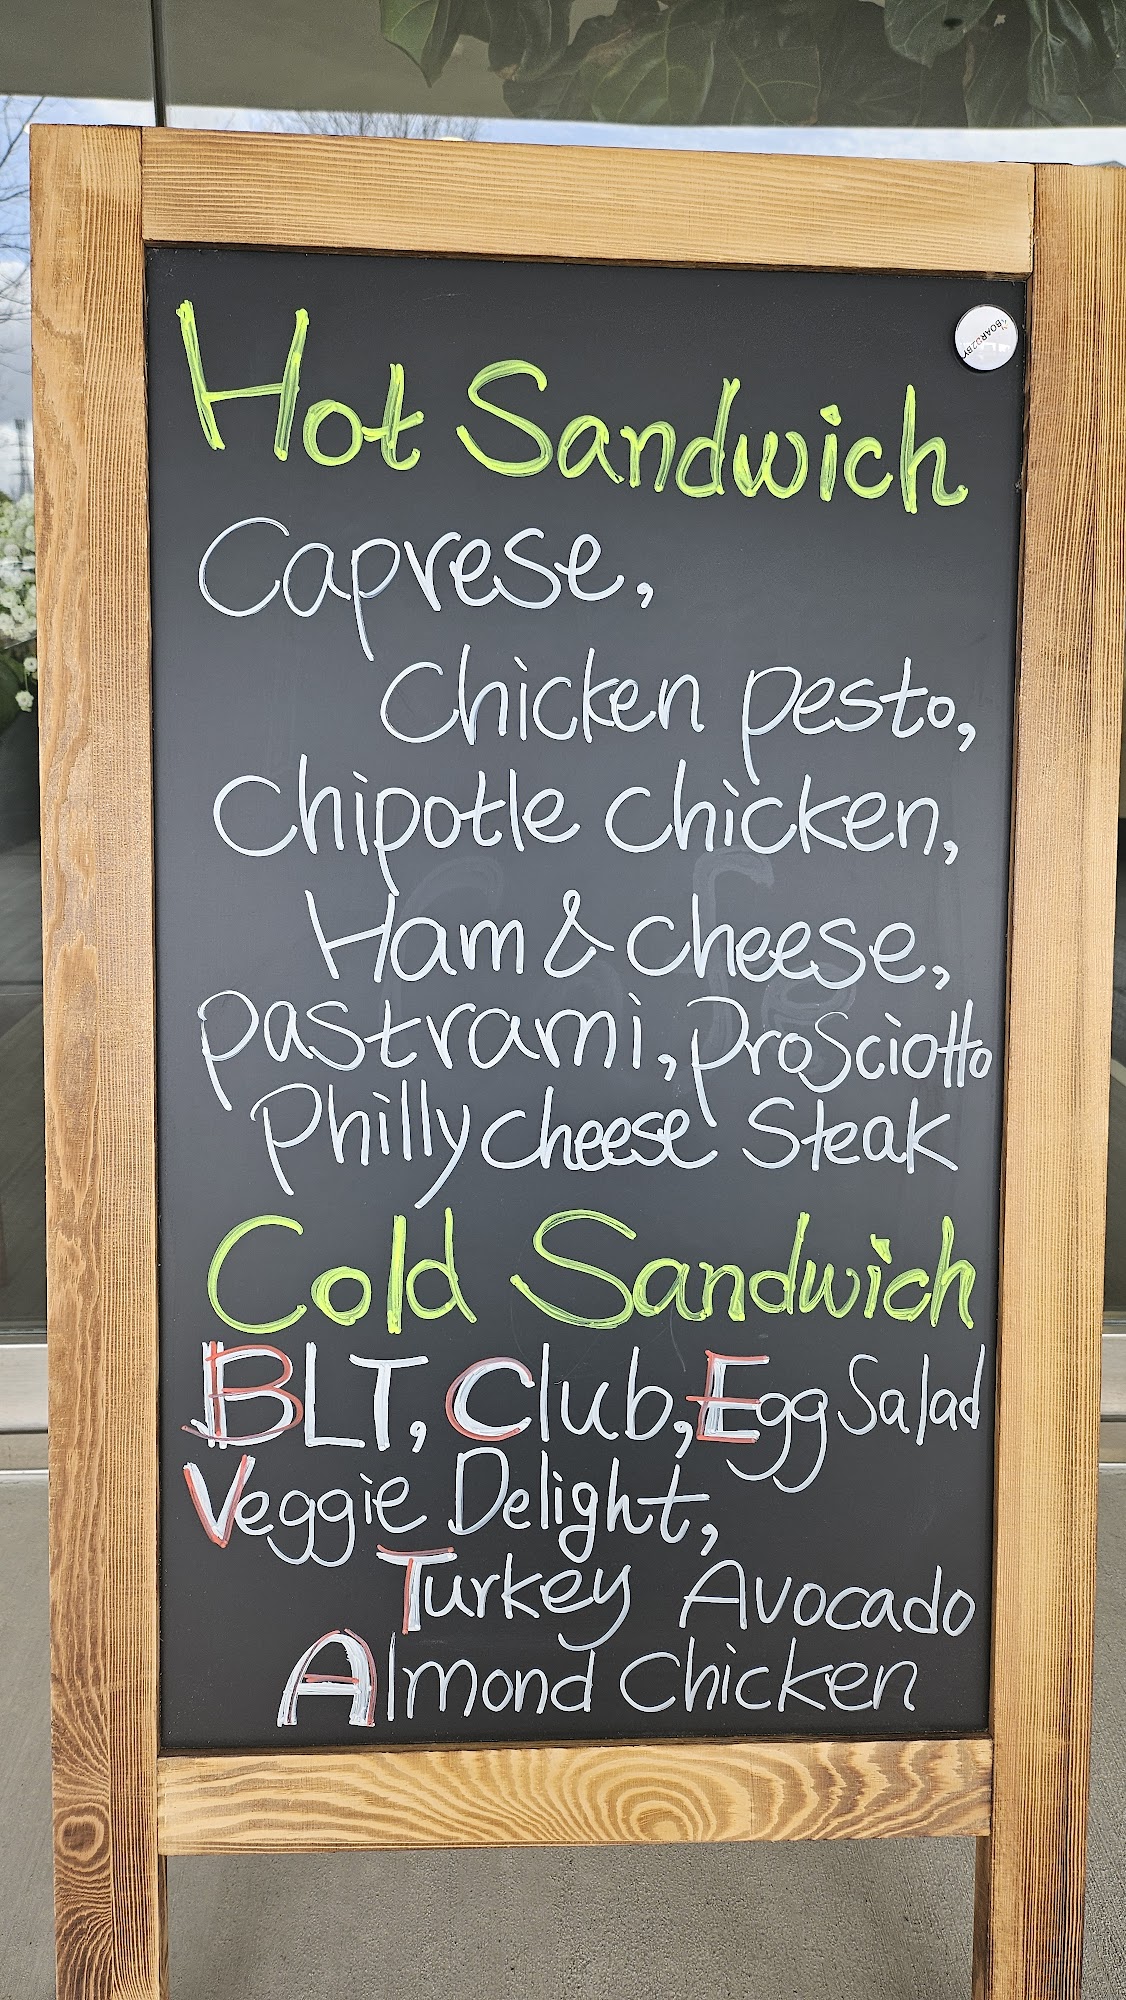 Hot Sandwich
Caprese,
Chicken pesto,
Chipotle chicken,
Ham & cheese,
pastrami, prosciotto
Philly cheese Steak
Cold Sandwich
BLT, Club, Egg Salad
Veggie Delight,
Turkey Avocado
Almond Chicken
BOARD2BY